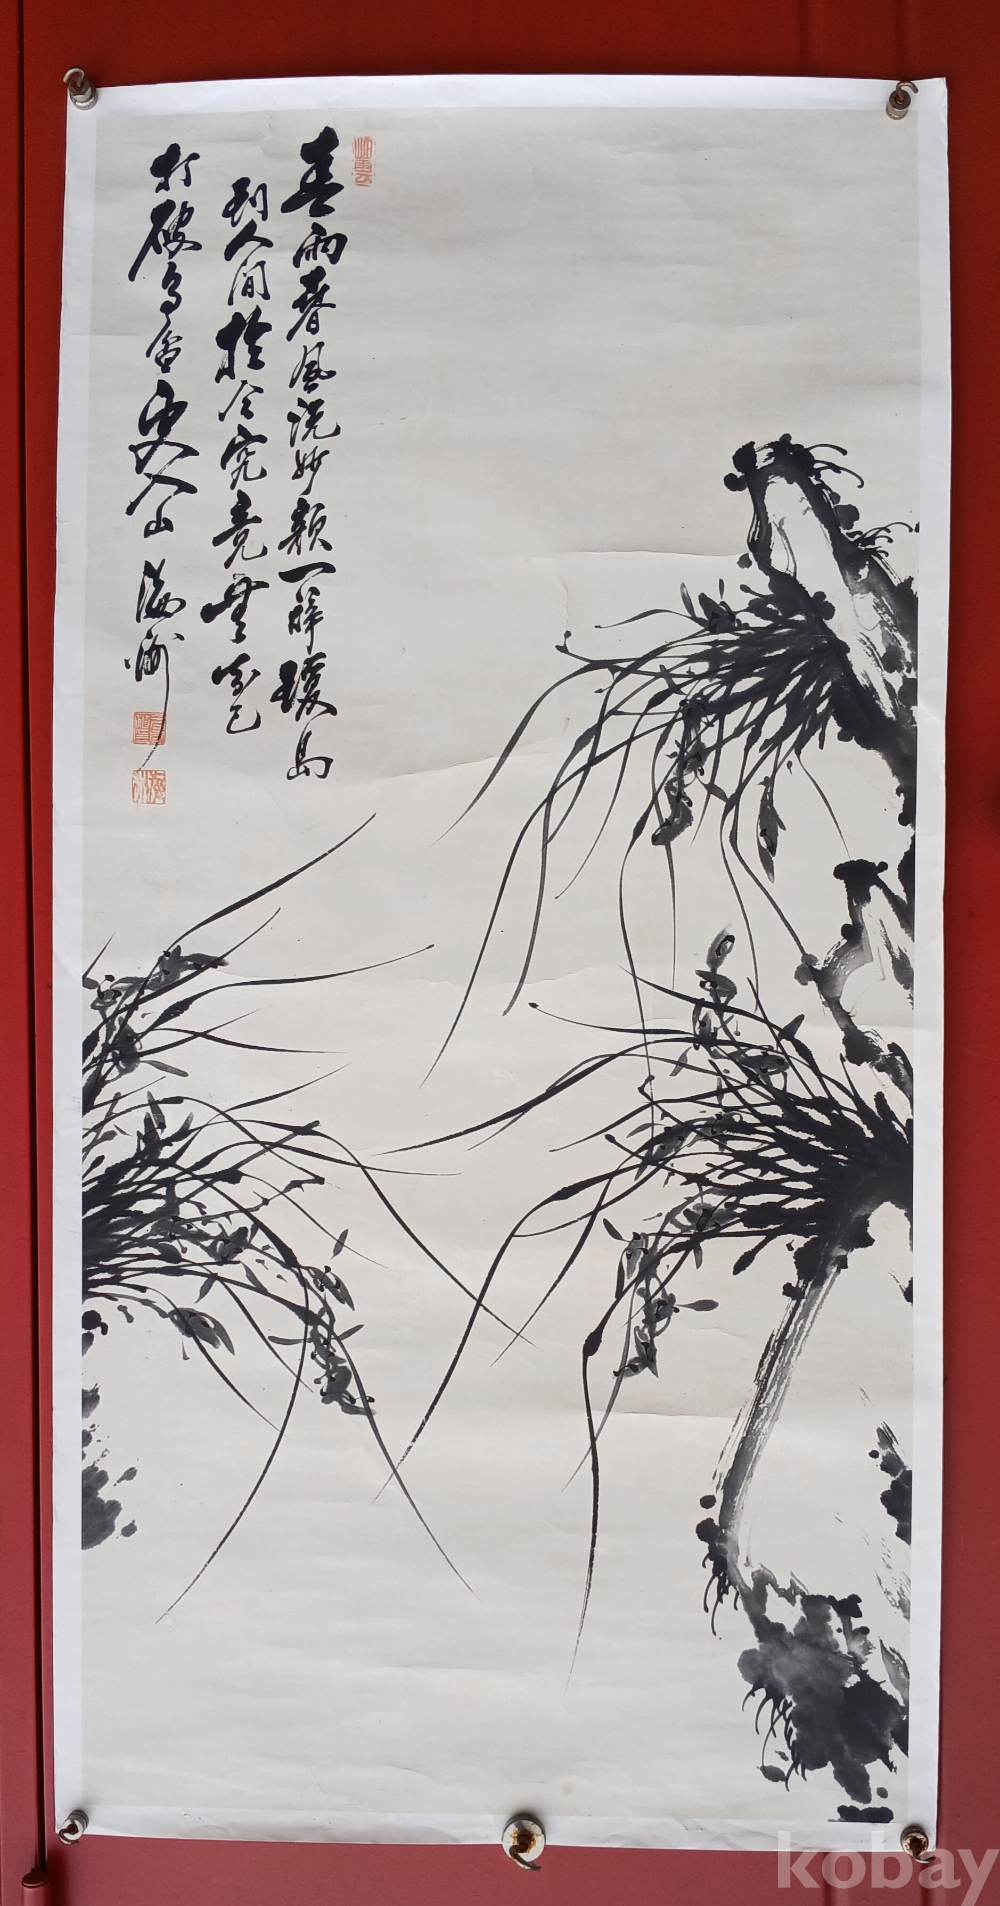 春雨春風洗妙顔一辭瓊島
到人間於今究竟無知己
打破烏盆更入山 海
kobay